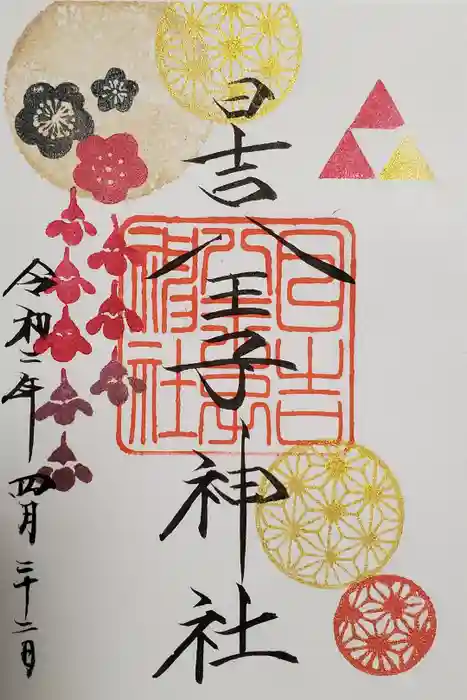 日吉八王子神社
日吉
八王子
神社
令和二年 四月 二十二日